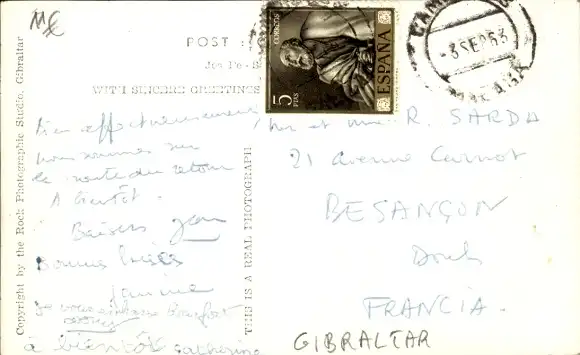 M€
POST
Jon Pe-S
WITH SINCERE GREETINGS
CORREOS
5
PTAS
ESPAÑA
-3 SEP 63
MALAGA
Copyright by the Rock Photographic Studio, Gibraltar
THIS IS A REAL PHOTOGRAPH
Bien affectueusement
nous sommes sur
la route du retour
A bientôt.
Baisers Jean
Bonnes bises
Janine
à bientôt Catherine
Mr et Mme R. SARDA
21 Avenue Carnot
BESANÇON
Doubs
FRANCIA.
GIBRALTAR